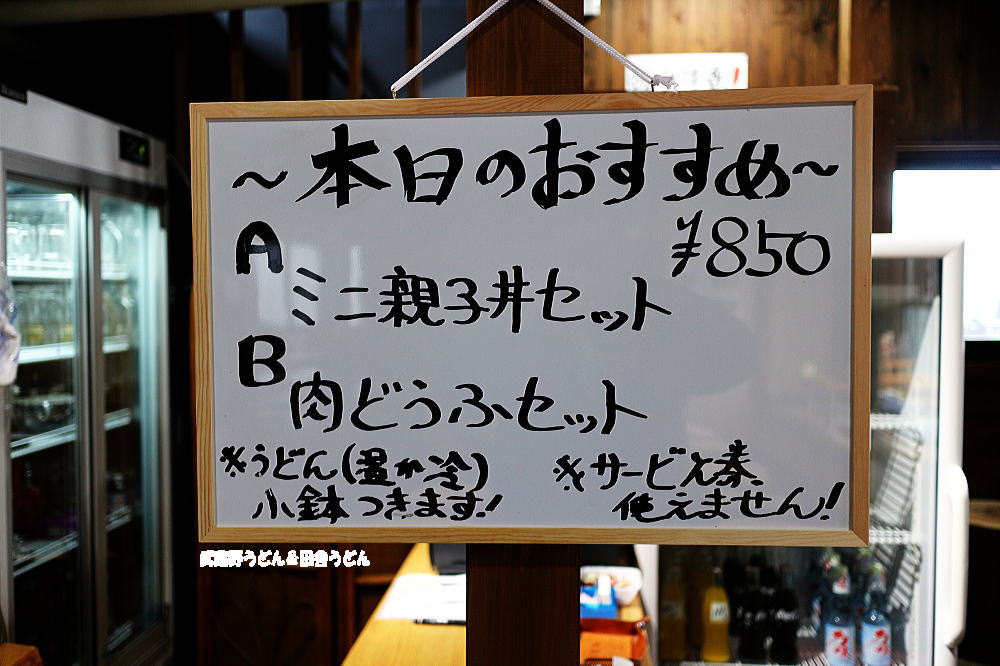 ～本日のおすすめ～
¥850
A
ミニ親子丼セット
B
肉どうふセット
※うどん(温か冷)
小鉢つきます!
※サービス券
使えません!
武蔵野うどん&田舎うどん